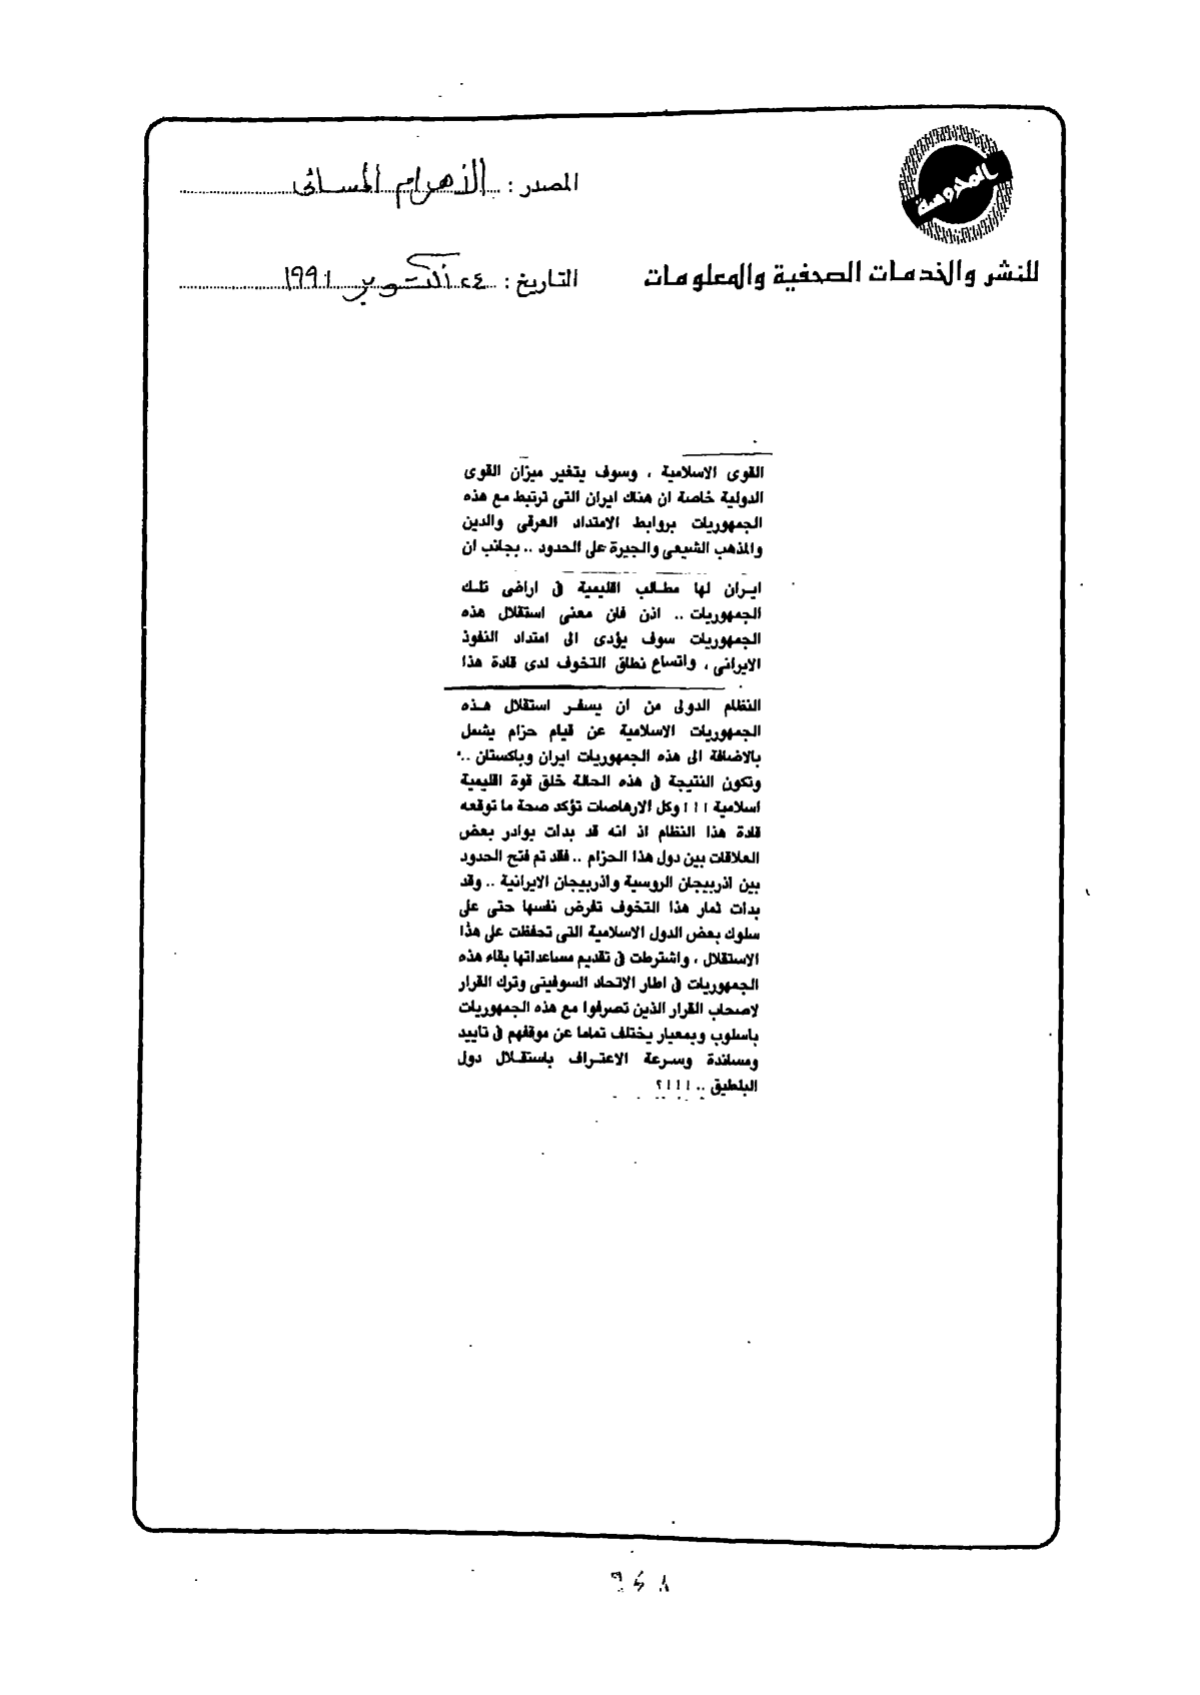 المحروسة
للنشر والخدمات الصحفية والمعلومات
المصدر : الأهرام المسائى
التاريخ : ٢٤ أكتوبر ١٩٩١
القوى الاسلامية ، وسوف يتغير ميزان القوى
الدولية خاصة ان هناك ايران التى ترتبط مع هذه
الجمهوريات بروابط الامتداد العرقى والدين
والمذهب الشيعى والجيرة على الحدود .. بجانب ان
ايران لها مطالب اقليمية فى اراضى تلك
الجمهوريات .. اذن فان معنى استقلال هذه
الجمهوريات سوف يؤدى الى امتداد النفوذ
الايرانى ، واتساع نطاق التخوف لدى قادة هذا
النظام الدولى من ان يسفر استقلال هذه
الجمهوريات الاسلامية عن قيام حزام يشمل
بالاضافة الى هذه الجمهوريات ايران وباكستان ..
وتكون النتيجة فى هذه الحالة خلق قوة اقليمية
اسلامية !!! وكل الارهاصات تؤكد صحة ما توقعه
قادة هذا النظام اذ انه قد بدات بوادر بعض
العلاقات بين دول هذا الحزام .. فقد تم فتح الحدود
بين اذربيجان الروسية واذربيجان الايرانية .. وقد
بدات ثمار هذا التخوف تفرض نفسها حتى على
سلوك بعض الدول الاسلامية التى تحفظت على هذا
الاستقلال ، واشترطت فى تقديم مساعداتها بقاء هذه
الجمهوريات فى اطار الاتحاد السوفيتى وترك القرار
لاصحاب القرار الذين تصرفوا مع هذه الجمهوريات
باسلوب وبمعيار يختلف تماما عن موقفهم فى تاييد
ومساندة وسرعة الاعتراف باستقلال دول
البلطيق .. !!!؟